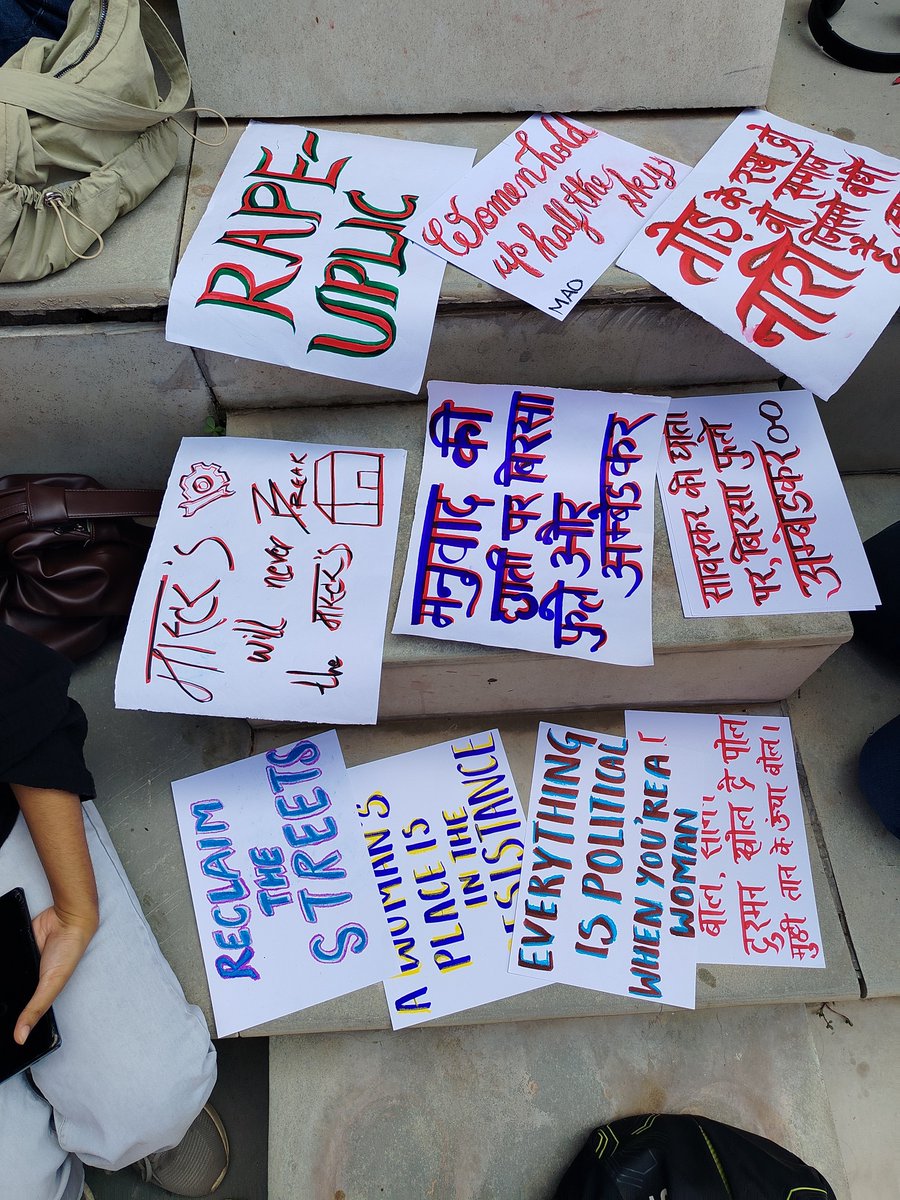 RAPE-
UPLIC
Women hold
up half the
sky
MAO
तोड़ के रख दो
नारी
जिसमें नहीं
है
मास्टर's
will never BREAK
the मास्टर's
मनुवाद की
छाती पर बिरसा
फुले और
अम्बेडकर
सावरकर की छाती
पर, बिरसा फुले
अम्बेडकर
RECLAIM
THE
STREETS
A WOMAN'S
PLACE IS
IN THE
ESISTANCE
EVERYTHING
IS POLITICAL
WHEN YOU'RE A
WOMAN
बोल,
दुश्मन खोल दे पोल
मुट्ठी तान के बोल।